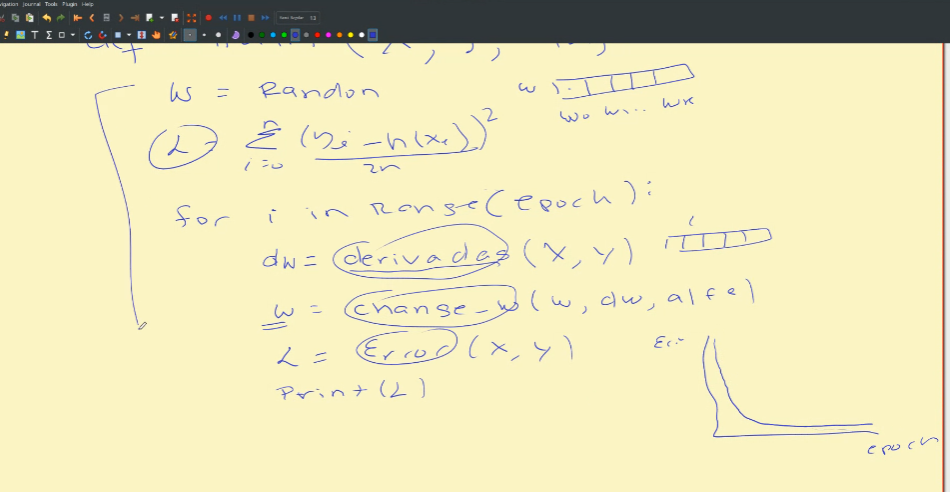 vigation Journal Tools Plugin Help
w = Random
w
w0 w1... wk
L = n Σ i=0 (yi - h(xi))² 2n
for i in Range(epoch):
dw = derivadas (X, Y)
w = change_w (w, dw, alfa)
L = Error (X, Y)
Err
Print(L)
epoch